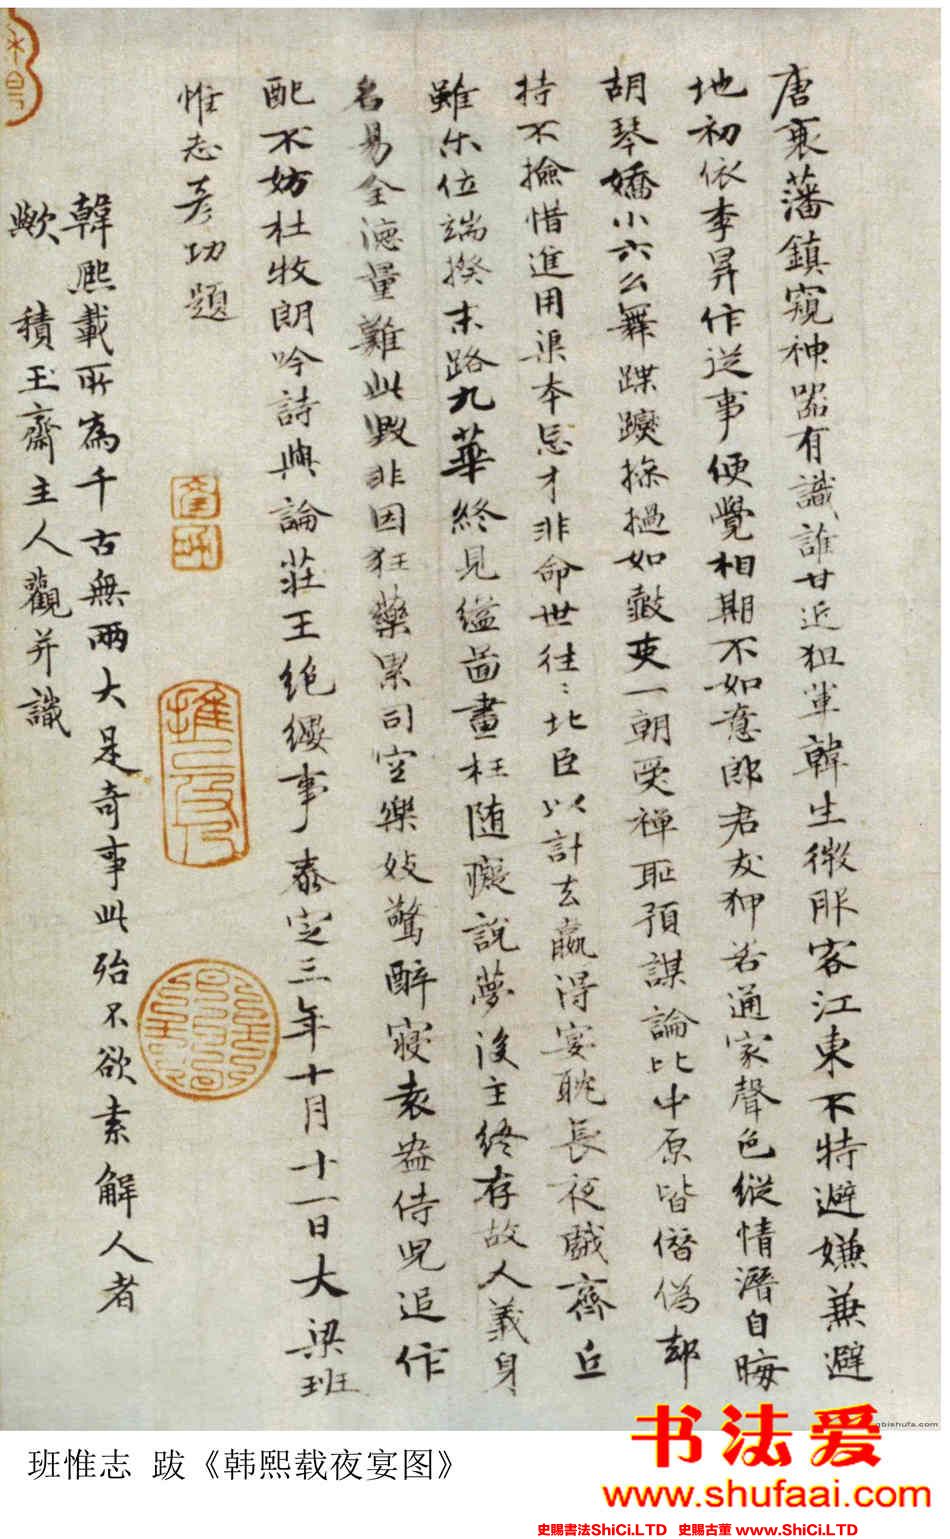 唐衰藩鎮窺神器有識誰甘近狙軍韓生微服客江東不特避嫌兼避
地初依李昇作逆事便覺相期不如意郎君友狎若通家聲色縱情潛自晦
胡琴嬌小六么舞蹀躞摻撾如鼓吏一朝受禪恥預謀論比中原皆僭偽却
持不撿惜進用渠本忌才非命世往〻北臣以計去贏得宴耽長夜戲齊丘
雖尔位端揆末路九華終見縊圖畫枉随癡說夢後主終存故人義身
名易全德量難此毀非因狂藥累司空樂妓驚醉寢袁盎侍児追作
配不妨杜牧朗吟詩與論莊王絕纓事泰定三年十月十一日大梁班
惟志彦功題
韓熙載所為千古無兩大是奇事此殆不欲素解人者
歟 積玉齋主人觀并識
班惟志 跋《韩熙载夜宴图》
书法爱
www.shufaai.com
史賜書法ShiCi.LTD 史賜古董 www.ShiCi.LTD